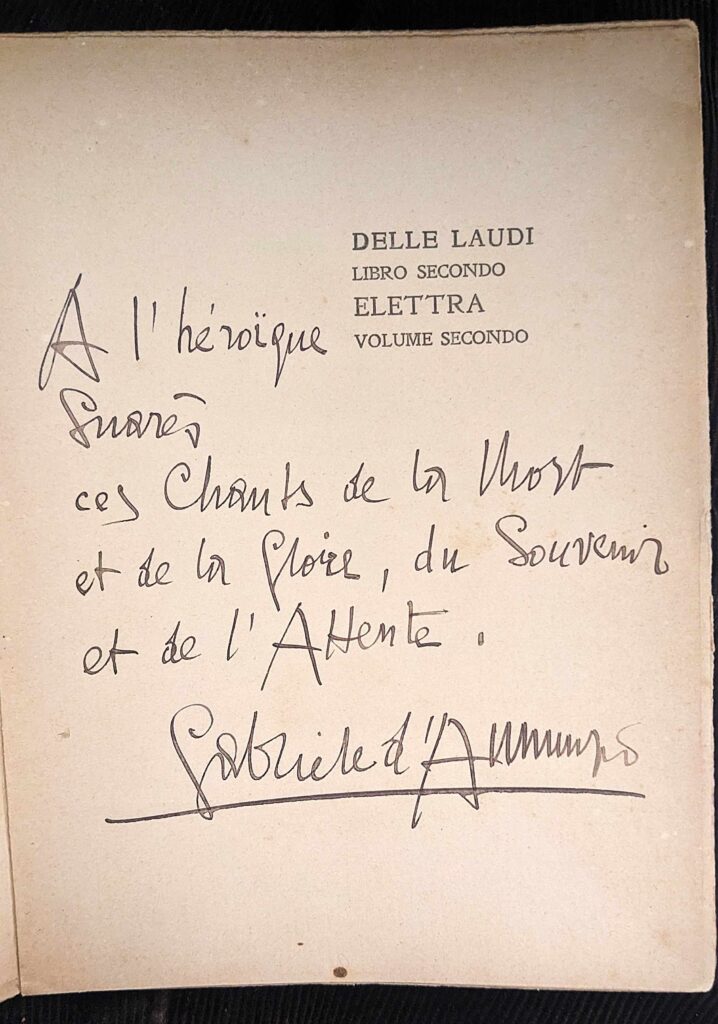 DELLE LAUDI
LIBRO SECONDO
ELETTRA
VOLUME SECONDO
A l'héroïque
Suarès
ces Chants de la Mort
et de la Gloire, du Souvenir
et de l'Attente.
Gabriele d'Annunzio